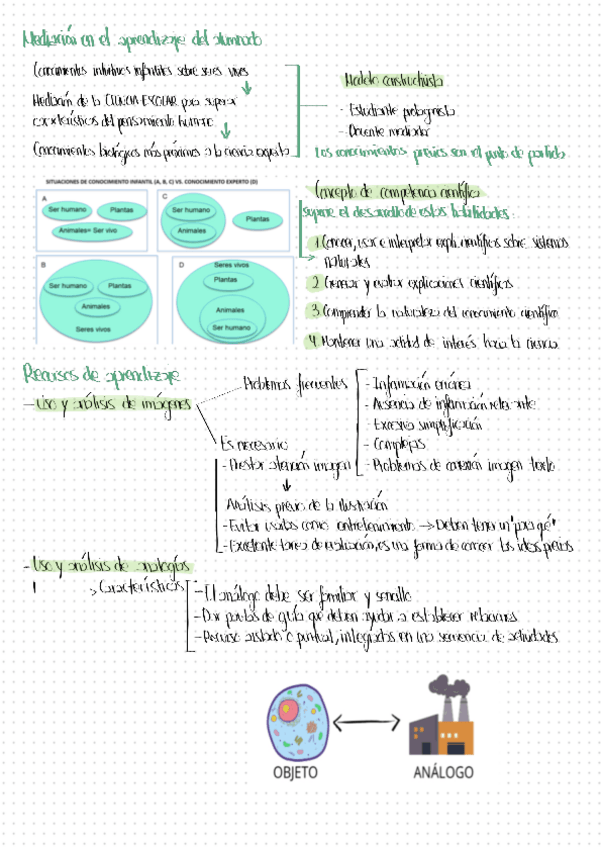 Mediación en el aprendizaje del alumnado
Conocimientos intuitivos infantiles sobre seres vivos
Mediación de la CIENCIA ESCOLAR para superar
características del pensamiento
Conocimientos biológicos más próximos a la ciencia experta
Modelo constructivista
- Estudiante protagonista
- Docente mediador
Los conocimientos previos son el punto de partida
SITUACIONES DE CONOCIMIENTO INFANTIL (A, B, C) VS. CONOCIMIENTO EXPERTO (D)
A
Ser humano
Plantas
Animales= Ser vivo
C
Ser humano
Animales
Plantas
B
Ser humano
Plantas
Animales
Seres vivos
D
Seres vivos
Plantas
Animales
Ser humano
Concepto de competencia científica
supone el desarrollo de estas habilidades:
1. Conocer, usar e interpretar expl. científicas sobre sistemas
naturales
2. Generar y evaluar explicaciones científicas
3. Comprender la naturaleza del conocimiento científico
4. Mantener una actitud de interés hacia la ciencia
Recursos de aprendizaje
- Uso y análisis de imágenes
Problemas frecuentes
- Información errónea
- Ausencia de información relevante
- Excesiva simplificación
- Complejas
- Problemas de conexión imagen texto
Es necesario
- Prestar atención imagen
Análisis previo de la ilustración
- Evitar usarlas como entretenimiento → Deben tener un "para qué"
- Excelente tarea de evaluación, es una forma de conocer las ideas previas
- Uso y análisis de analogías
> Características
- El análogo debe ser familiar y sencillo
- Dar pautas de guía que deben ayudar a establecer relaciones
- Recurso aislado o puntual, integradas en una secuencia de actividades
OBJETO
ANÁLOGO